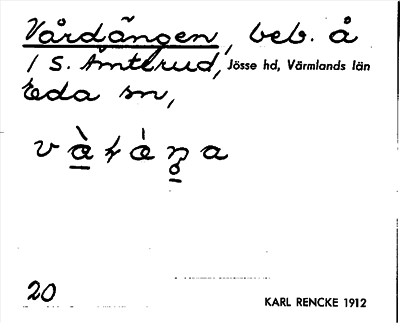 Vårdängen, beb. å
1 S. Åmterud, Jösse hd, Värmlands län
Eda sn,
20
KARL RENCKE 1912